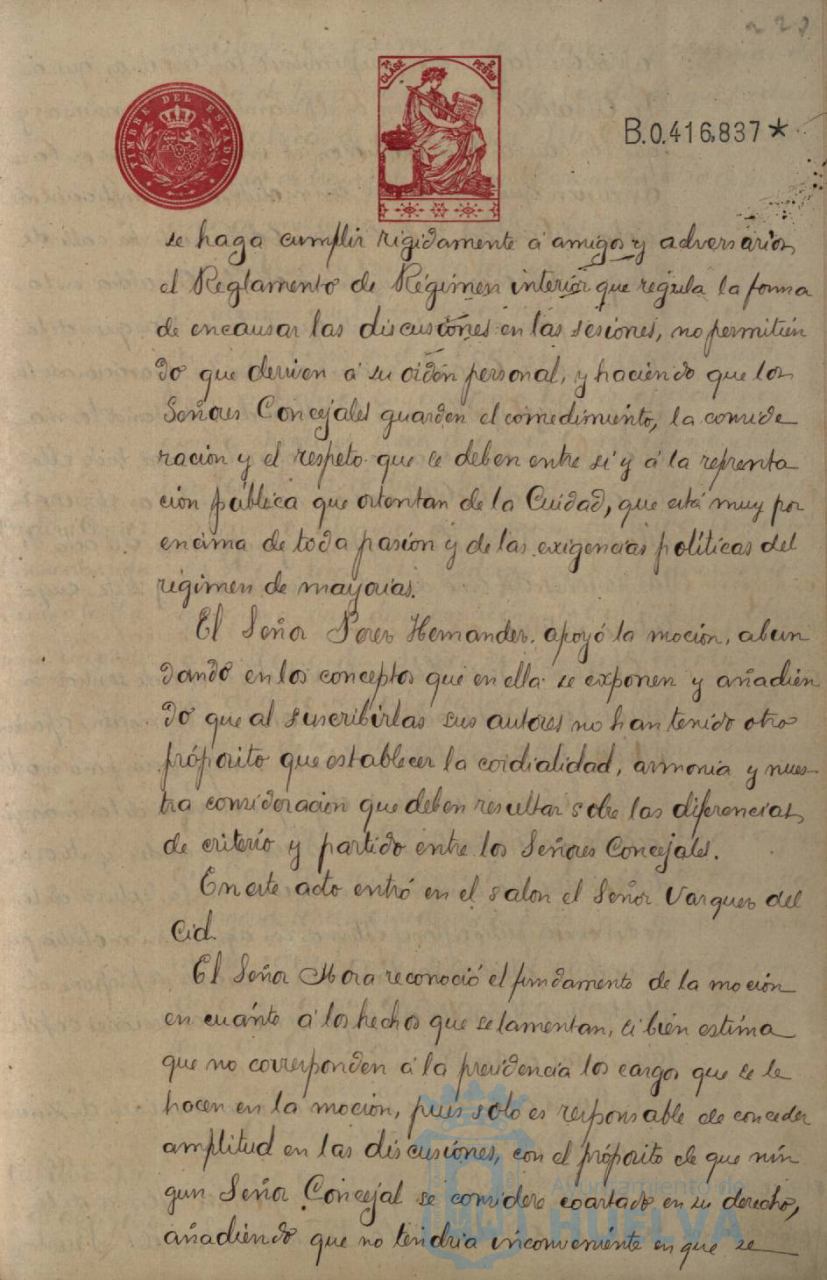 228
TIMBRE DEL ESTADO
7ª CLASE 2 PESTAS
B.0.416,837*
se haga cumplir rigidamente á amigos y adversarios
el Reglamento de Régimen interior que regula la forma
de encausar las discusiones en las sesiones, no permitien
do que deriven á su orden personal, y haciendo que los
Señores Concejales guarden el comedimiento, la conside
ración y el respeto que se deben entre si y á la reprenta
ción pública que ostentan de la Cuidad, que está muy por
encima de toda pasion y de las exigencias políticas del
régimen de mayorias.
El Señor Perez Hernandez apoyó la moción, abun
dando en los conceptos que en ella se exponen y añadien
do que al suscribirlas sus autores no han tenido otro
própósito que establecer la cordialidad, armonia y nues
tra consideracion que deben resultar sobre las diferencias
de criterio y partido entre los Señores Concejales.
En este acto entró en el salon el Señor Vazquez del
Cid.
El Señor Mora reconoció el fundamento de la moción
en cuánto á los hechos que se lamentan, si bien estima
que no corresponden á la presidencia los cargos que se le
hacen en la moción, pues sólo es responsable de conceder
amplitud en las discusiónes, con el própósito de que nin
gun Señor Concejal se considere coartado en su derecho,
añadiendo que no tendria inconveniente en que se
Ayuntamiento de
HUELVA